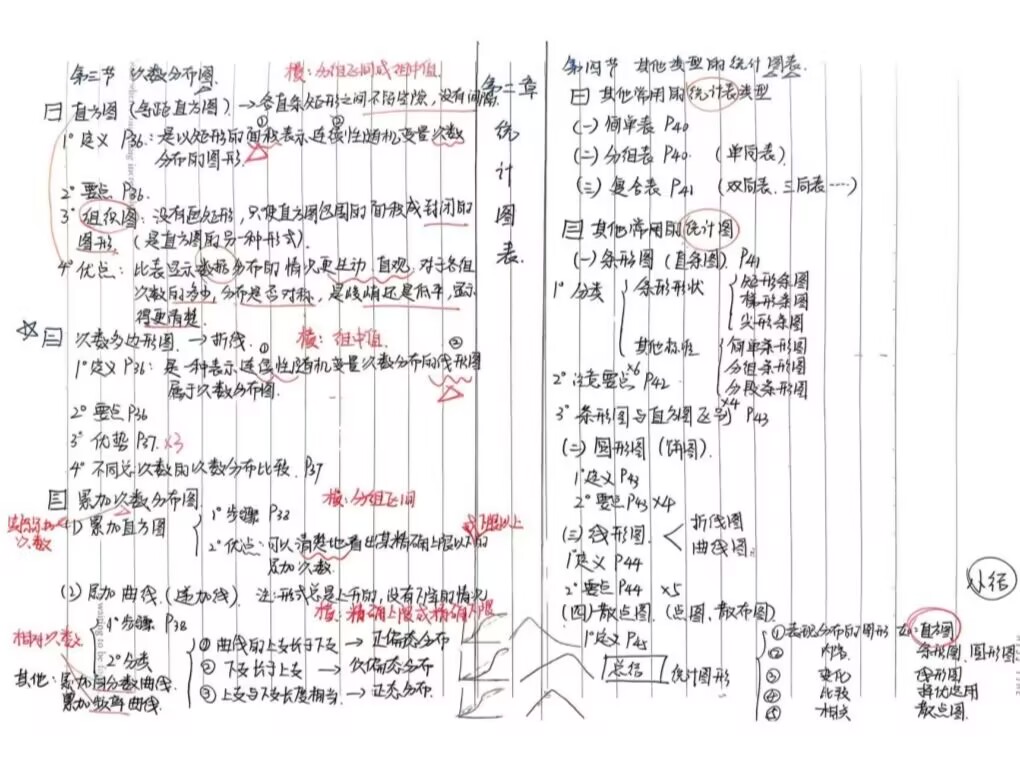 第三节 次数分布图
横：分组区间或组中值
一 直方图（等距直方图）→各直条矩形之间不留空隙，没有间隔
1° 定义 P36：是以矩形的面积表示连续性随机变量次数
① ②
分布的图形
2° 要点 P36.
3° 组织图：没有画矩形，只使直方图包围的面积成封闭的
图形.（是直方图的另一种形式）.
4° 优点：比表显示数据分布的情况更生动、直观，对于各组
次数的多少，分布是否对称，是陡峭还是低平，显示
得更清楚.
☆二 次数多边形图 → 折线.
横：组中值
1° 定义 P36：是一种表示连续性随机变量次数分布的线形图
① ②
属于次数分布图.
2° 要点 P36
3° 优势 P37. ×3
4° 不同总次数的次数分布比较. P37
三 累加次数分布图
横：分组区间
次数
(1) 累加直方图
1° 步骤 P38
2° 优点：可以清楚地看出某精确上限以下的
或下限以上
累加次数.
(2) 累加曲线（递加线）. 注：形式总是上升的，没有下降的情况
横：精确上限或精确下限
相对次数
1° 步骤 P38
2° 分类
① 曲线的上支长于下支 → 正偏态分布
② 下支长于上支 → 负偏态分布
③ 上支与下支长度相当 → 正态分布.
其他：累加百分数曲线.
累加数率曲线.
第二章 统计图表.
第四节 其他类型的统计图表.
一 其他常用的统计表类型
(一) 简单表 P40
(二) 分组表 P40. （单向表）
(三) 复合表 P41 （双向表、三向表……）
二 其他常用的统计图
(一) 条形图（直条图）. P41
1° 分类
条形形状
矩形条图
梯形条图
尖形条图
其他标准
简单条形图
分组条形图
分段条形图
2° 注意要点 ×6 P42.
3° 条形图与直方图区别 ×4 P43
(二) 圆形图（饼图）.
1° 定义 P43
2° 要点 P43 ×4
(三) 线形图.
折线图
曲线图.
1° 定义 P44
2° 要点 P44 ×5
(四) 散点图.（点图、散布图）.
1° 定义 P45
小结
总结
统计图形
① 表现分布的图形 直方图
② 内容 条形图、圆形图
③ 变化 线形图
④ 比较 择优选用
⑤ 相关 散点图.